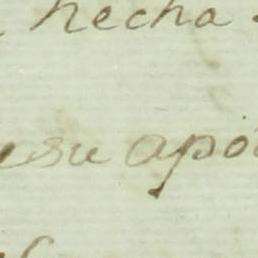 hecha
su apo